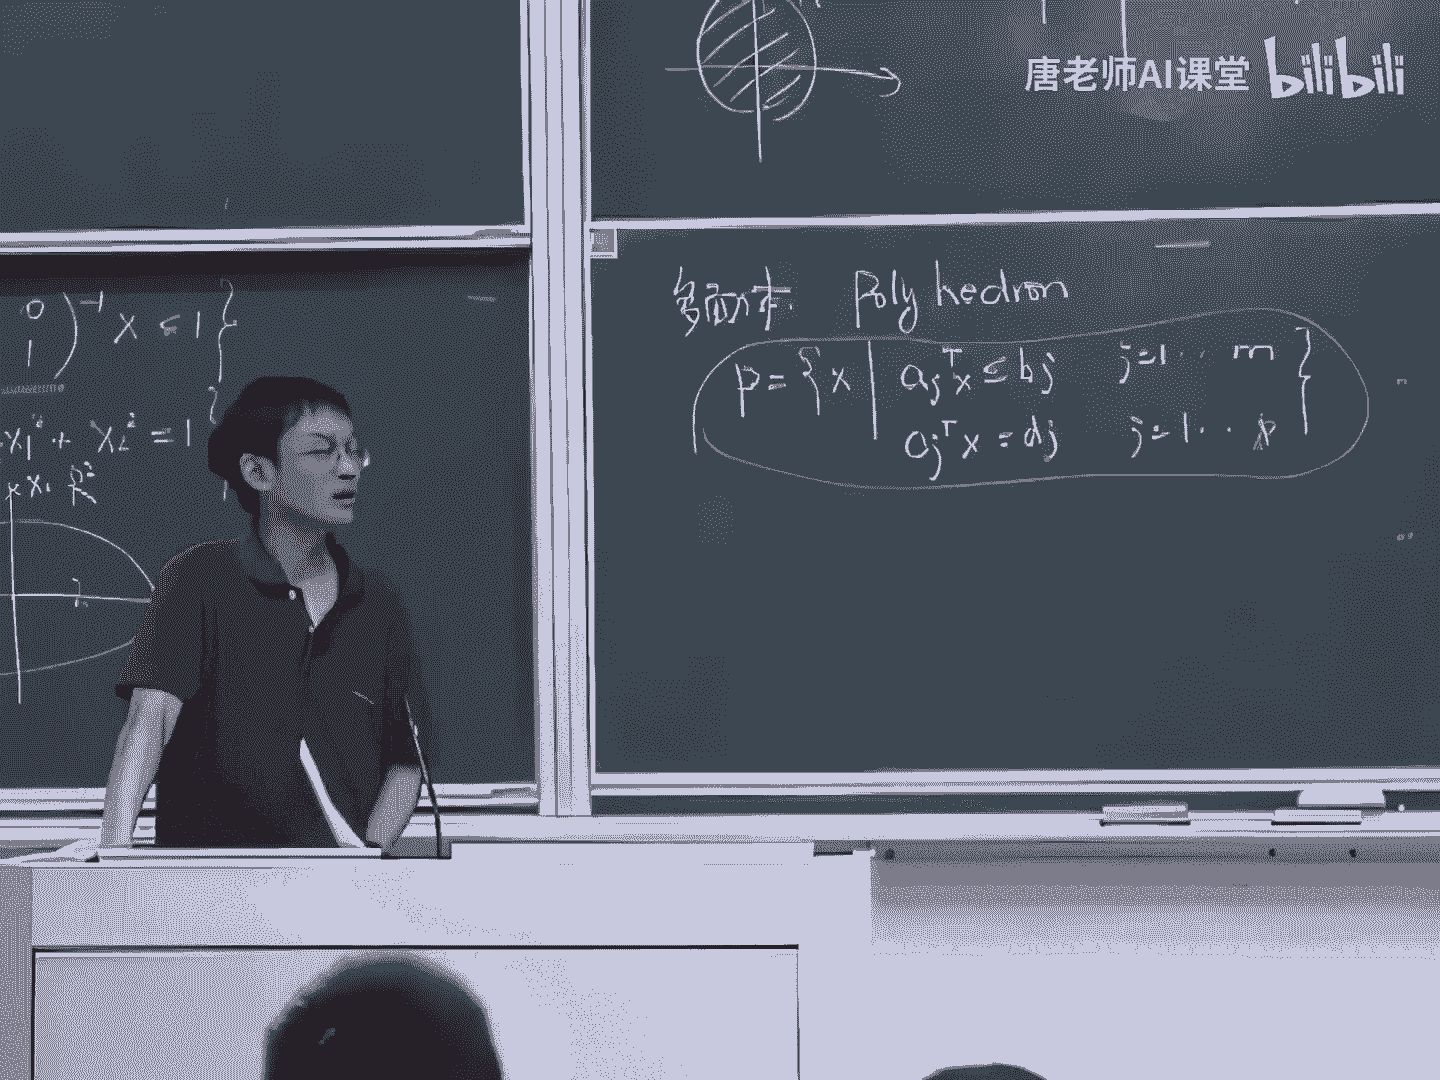 唐老师AI课堂 bilibili
0
1 )⁻¹ x ≤ 1 }
x₁² + x₂² = 1
R²
2
多面体 Polyhedron
P = { x | aⱼᵀx ≤ bⱼ j=1·· m }
aⱼᵀx = dⱼ j=1·· p